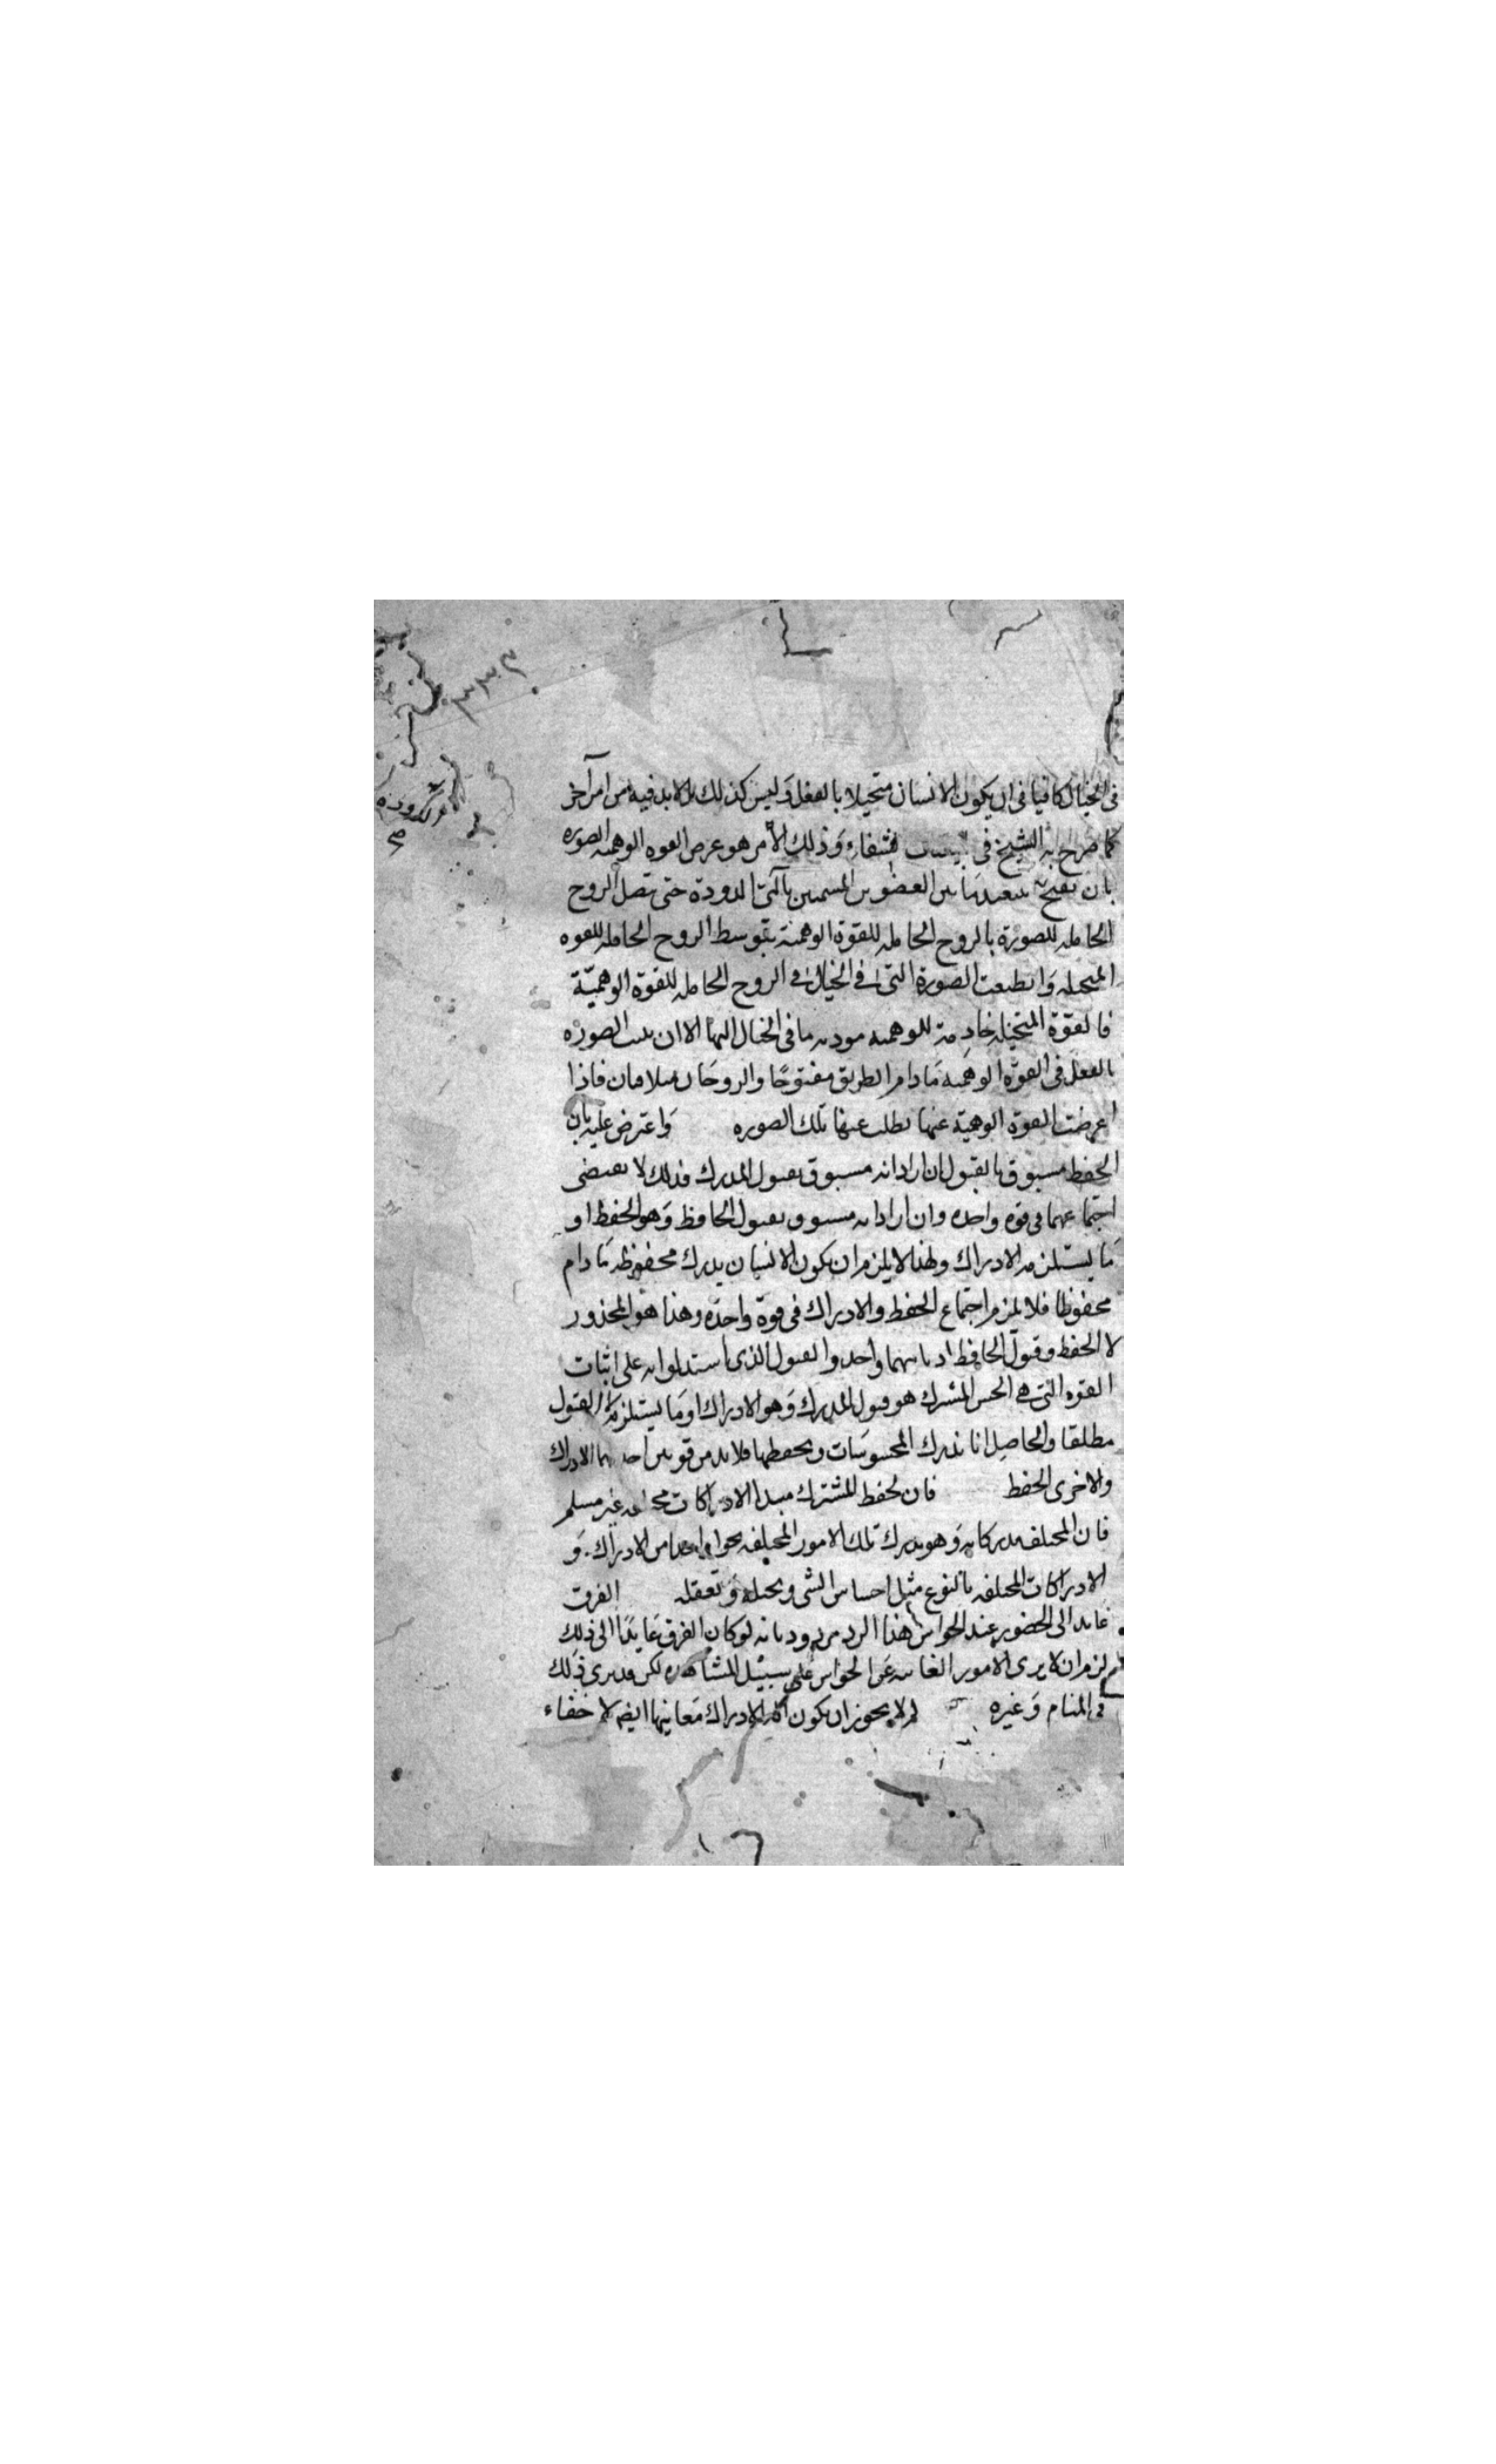 ٣٣٣
في الخيال كافيا في ان يكون الانسان متخيلا بالفعل وليس كذلك بل لابد فيه من امر آخر
كما صرح به الشيخ في الشفاء وذلك الامر هو عرض القوه الوهميه الصوره
بان بفتح العضوين المسميين الدودة حتى تصل الروح
الحامله للصورة بالروح الحامله للقوة الوهمية بتوسط الروح الحامله للقوه
المتخيله وانطبعت الصورة التي في الخيال في الروح الحامله للقوة الوهميّة
فالقوّة المتخيله خادمة للوهميه موديه ما في الخيال اليها الا ان الصوره
بالفعل في القوّه الوهميه مادام الطريق مفتوحًا والروحان متلاقيان فاذا
اعرضت القوة الوهمية عنها بطلت عنها تلك الصوره واعترض عليه بان
الحفظ مسبوق بالقبول ان اراد انه مسبوق بقبول المدرك فذلك لا يقتضى
اجتماعهما في قوه واحده وان اراد انه مسبوق بقبول الحافظ وهو الحفظ او
ما يستلزمه لا الادراك ولهذا لا يلزم ان يكون الانسان يدرك محفوظه مادام
محفوظا فلا يلزم اجتماع الحفظ والادراك في قوة واحده وهذا هو المحذور
لا الحفظ وقبول الحافظ واحد والقبول الذى استدلوا به على اثبات
القوه التي هي الحس المشترك هو قبول المدرك وهو الادراك او ما يستلزمه لا القبول
مطلقا والحاصل انا ندرك المحسوسات ونحفظها فلا بد من قوتين احديهما الادراك
والاخرى الحفظ فان الحفظ المشترك مبدا الادراكات مختلفه غير مسلم
فان المختلف مدركاته وهو يدرك تلك الامور المختلفه الادراك. و
الادراكات المختلفه بالنوع مثل احساس الشى وتخيله وتعقله الفرق
عايد الى الحضور عند الحواس هذا الرد مردود بانه لو كان الفرق عايدًا الى ذلك
لزم ان لا يرى الامور الغايبه عن الحواس على سبيل المشاهده لكن قد يرى ذلك
في المنام وغيره لم لا يجوز ان يكون الادراك معاينها ايضا لا خفاء